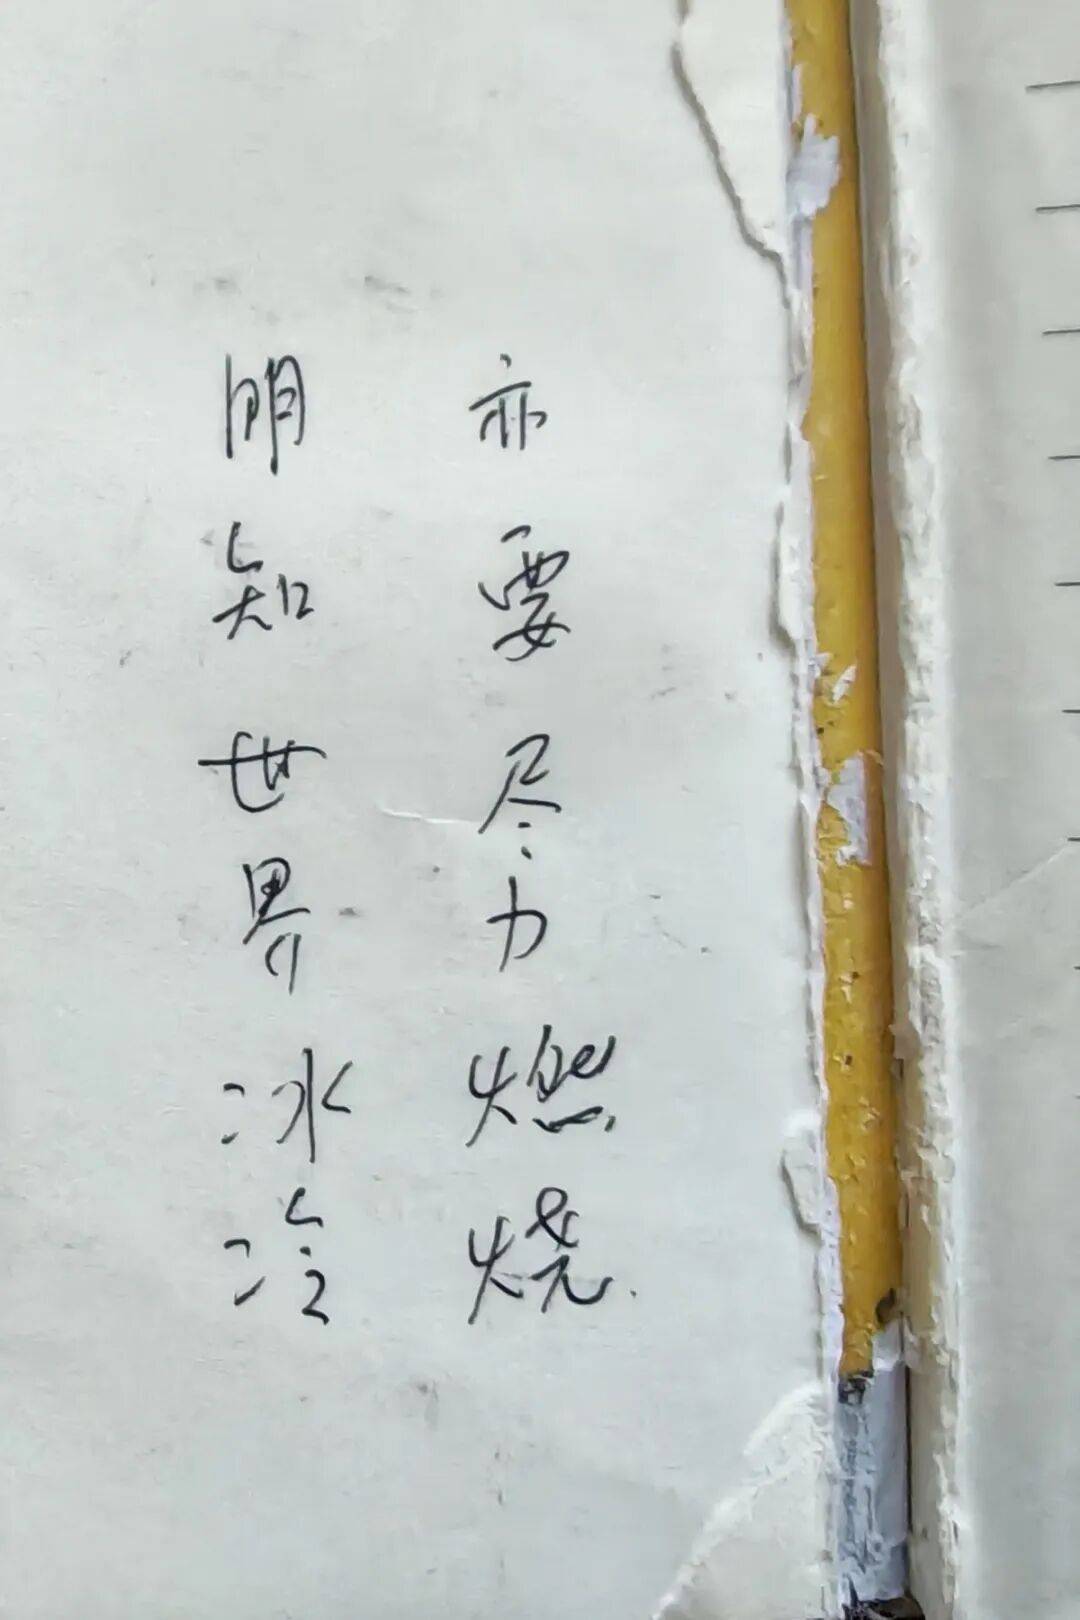 明知世界冰冷
亦要尽力燃烧.